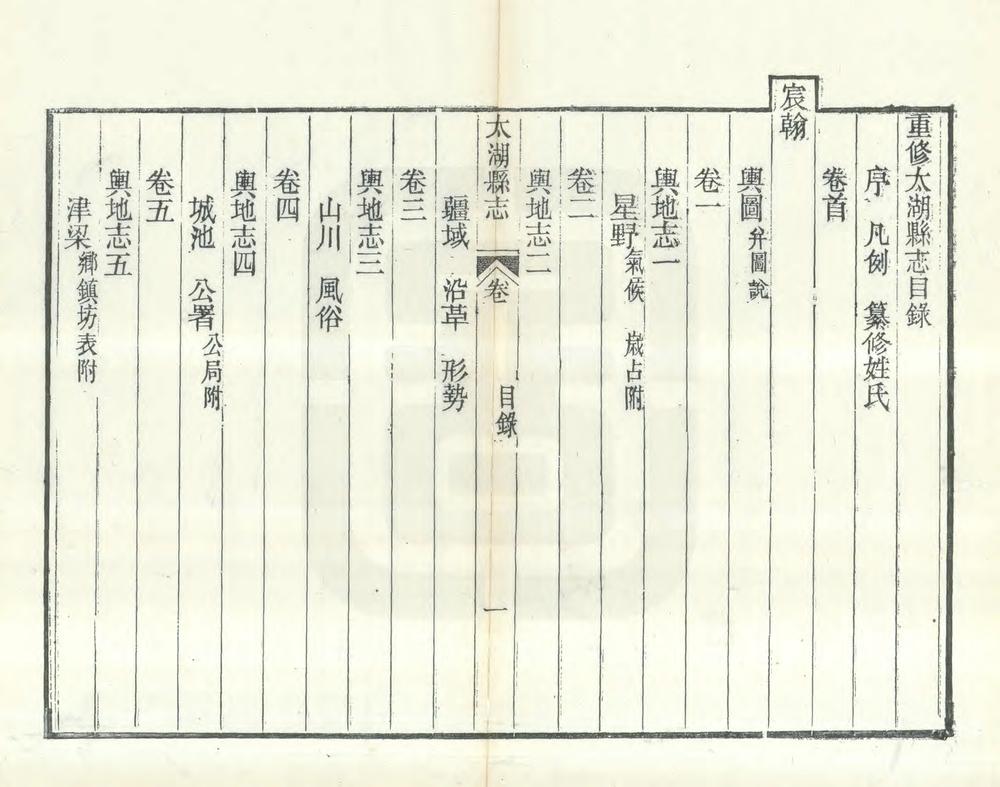 重修太湖縣志目錄
序 凡例 纂修姓氏
卷首
宸翰
輿圖弁圖說
卷一
輿地志一
星野氣候 歲占附
卷二
輿地志二
太湖縣志 卷 目錄 一
疆域 沿革 形勢
卷三
輿地志三
山川 風俗
卷四
輿地志四
城池 公署公局附
卷五
輿地志五
津梁鄉鎮坊表附